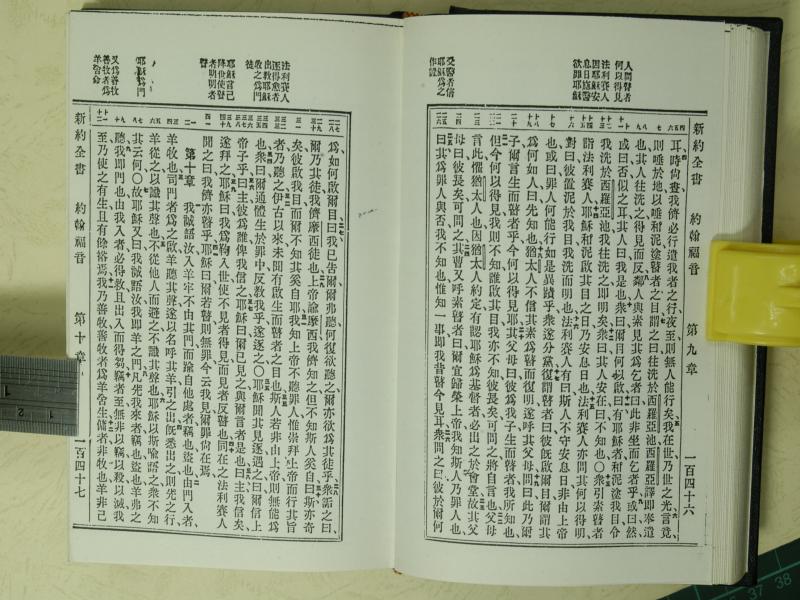 新約全書 約翰福音 第九章 一百四十六
人問瞽者
何以得見
法利賽人
因耶穌安
息日施醫
受醫者信
耶穌為之
作證
耳時尚晝我儕必行遣我者之行夜至則無人能行矣我在世乃世之光言竟
則唾於地以唾和泥塗瞽者之目謂之曰往洗於西羅亞池西羅亞譯即奉遣
也其人往洗之得見而反鄰人與素見其為乞者曰此非坐而乞者乎或曰然
或曰否似之耳其人曰我是也衆曰爾目何以啟曰有耶穌者和泥塗我目令
我洗於西羅亞池我往洗之即明矣衆曰其人安在曰不知也〇衆引素瞽者
詣法利賽人耶穌和泥啟其目之日乃安息日也法利賽人亦問其何以得明
對曰彼置泥於我目我洗而明也法利賽人有曰斯人不守安息日非由上帝
也或曰罪人何能行如是異蹟乎衆遂分黨復謂瞽者曰彼旣啟爾目爾謂其
為何如人曰先知也猶太人不信其素為瞽而復明遂呼其父母問曰此乃爾
子爾言生而瞽者乎今何以得見耶其父母曰彼為我子生而瞽者我所知也
但今何以得見我則不知誰啟其目我亦不知彼長矣可問之將自言也父母
言此懼猶太人也因猶太人約定有認耶穌為基督者必出之於會堂故其父
母曰彼長矣可問之其曹又呼素瞽者曰爾宜歸榮上帝我知斯人乃罪人也
曰其為罪人與否我不知也惟知一事即我昔瞽今見耳衆問之曰彼於爾何
法利賽人
逐得愈者
出教耶穌
收之為門
徒
耶穌言己
降世使瞽
者明明者
瞽
耶穌為門
又為善牧
善牧者為
羊舍命
為如何啟爾目曰我已告爾爾弗聽何復欲聽之爾亦欲為其徒乎衆詬之曰
爾乃其徒我儕摩西徒也上帝諭摩西我儕知之但不知斯人奚自曰斯亦奇
矣彼啟我目而爾不知其奚自耶我知上帝不聽罪人惟崇拜上帝而行其旨
者乃聽之伊古以來未聞有啟生而瞽者之目也斯人若非由上帝則無能為
也衆曰爾通體生於罪中反教我乎遂逐之〇耶穌聞其見逐遇之曰爾信上
帝子乎曰主彼為誰俾我信之耶穌曰爾已見之與爾言者是也曰主我信矣
遂拜之耶穌曰我為鞫入世使不見者得見而見者反瞽也同在之法利賽人
聞之曰我儕亦瞽乎耶穌曰爾若瞽則無罪今云我見爾罪尚在焉
第十章 我誠語汝入羊牢不由其門而踰自他處者竊也盜也由門入者
羊牧也司門者為之啟羊聽其聲遂以名呼其羊引之出旣悉出之則先之行
羊從之以識其聲也不從他人而避之不識其聲也耶穌以斯喻語之衆不知
其云何〇故耶穌又曰我誠語汝我即羊之門凡先我來者竊也盜也羊弗之
聽我即門也由我入者必得救且出入而得芻竊者至無非以竊以殺以滅我
至乃使之有生且有餘裕焉我乃善牧善牧者為羊舍生傭者非牧也羊非己
新約全書 約翰福音 第十章 一百四十七